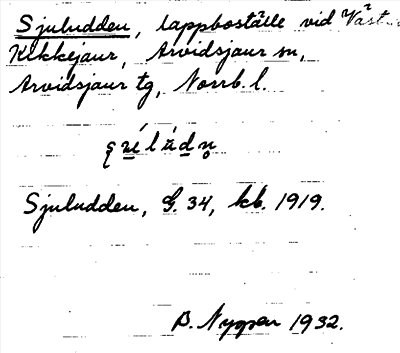 Sjuludden, lappboställe vid Väst.
Kikkejaur, Arvidsjaur sn,
Arvidsjaur tg, Norrb. l.
Sjuludden, G. 34, kb. 1919.
B. Nygren 1932.